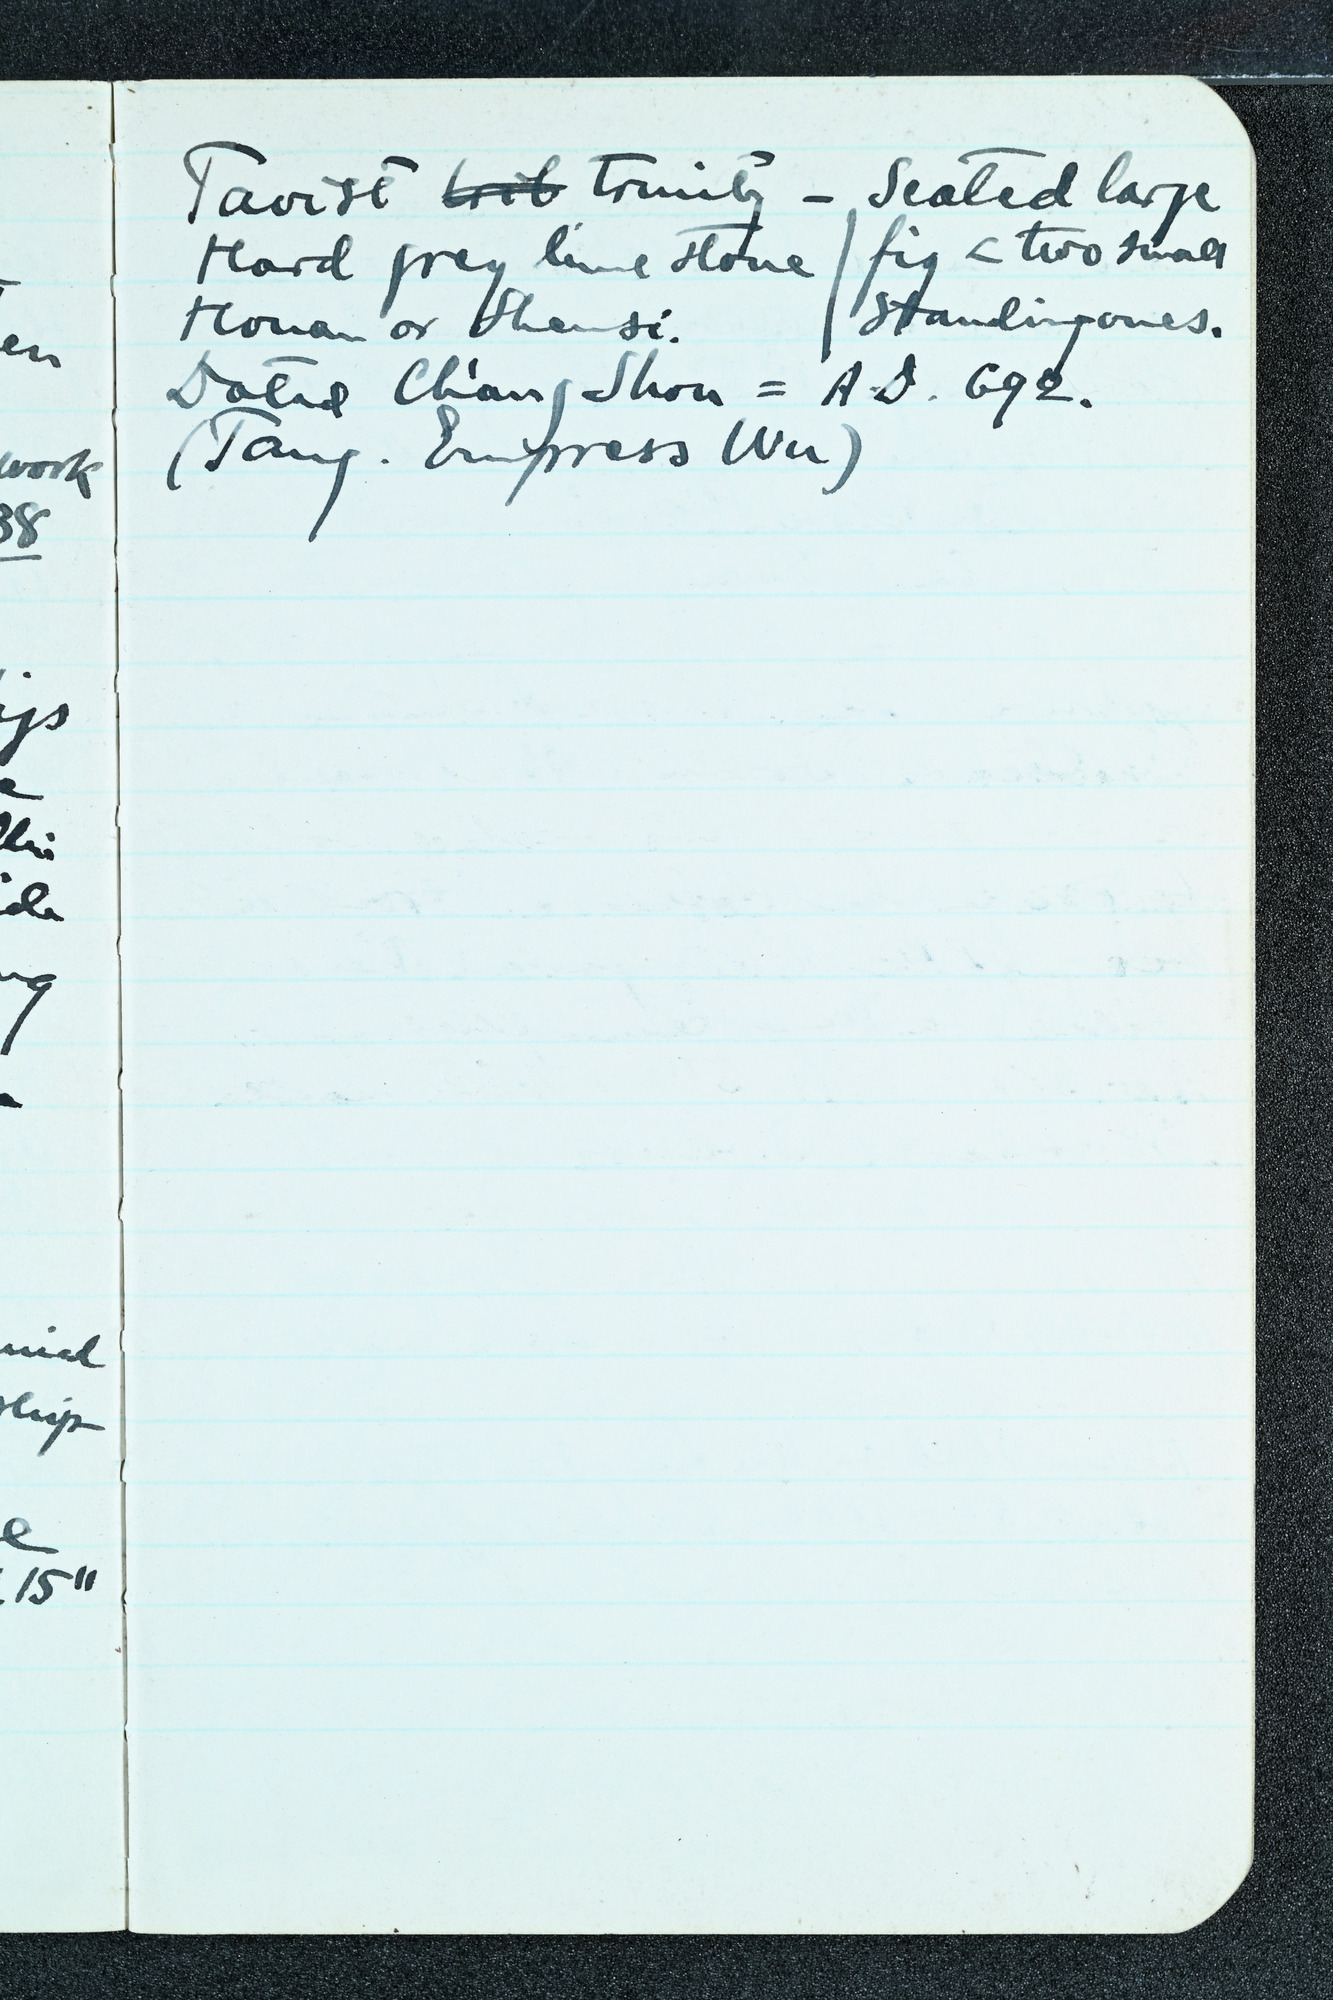 en
work
38
igs
e
ide
ng
ship
e
15"
Taoist trinity – Seated large
Hard grey lime stone / fig < two small
Honan or Shensi. standing ones.
Dated Ch'ang Shou = A.D. 692.
(Tang. Empress Wu)